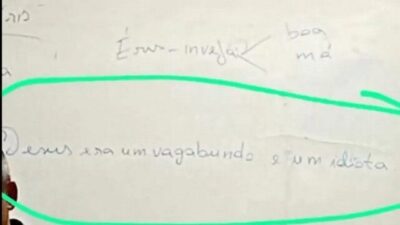 Éris - inveja boa
má
Jesus era um vagabundo e um idiota